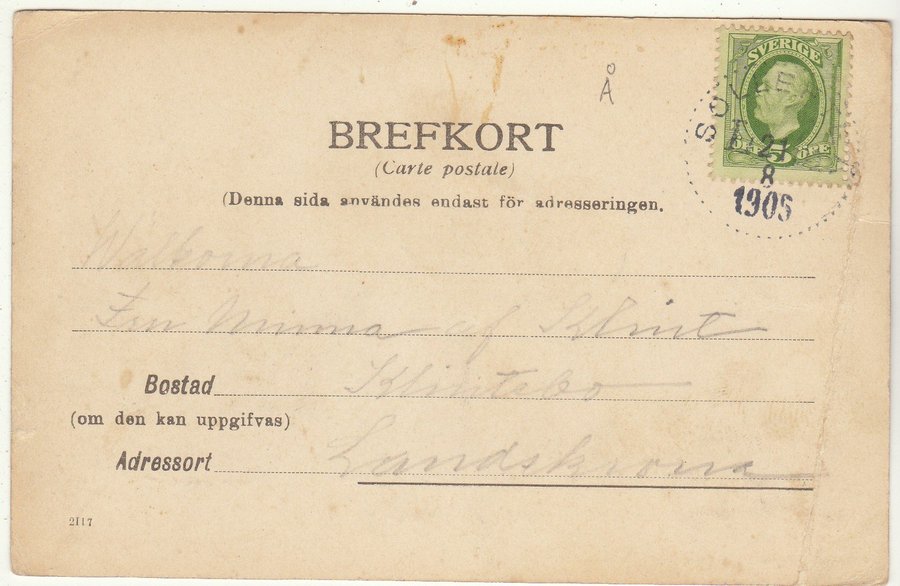 Å
SVERIGE
5 ÖRE
21
8
1905
BREFKORT
(Carte postale)
(Denna sida användes endast för adresseringen.
Wälborna
Fru Minna af Klint
Bostad Klintebo
(om den kan uppgifvas)
Adressort Landskrona
2117